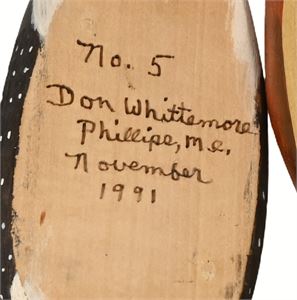 No. 5
Don Whittemore
Phillips, Me.
November
1991